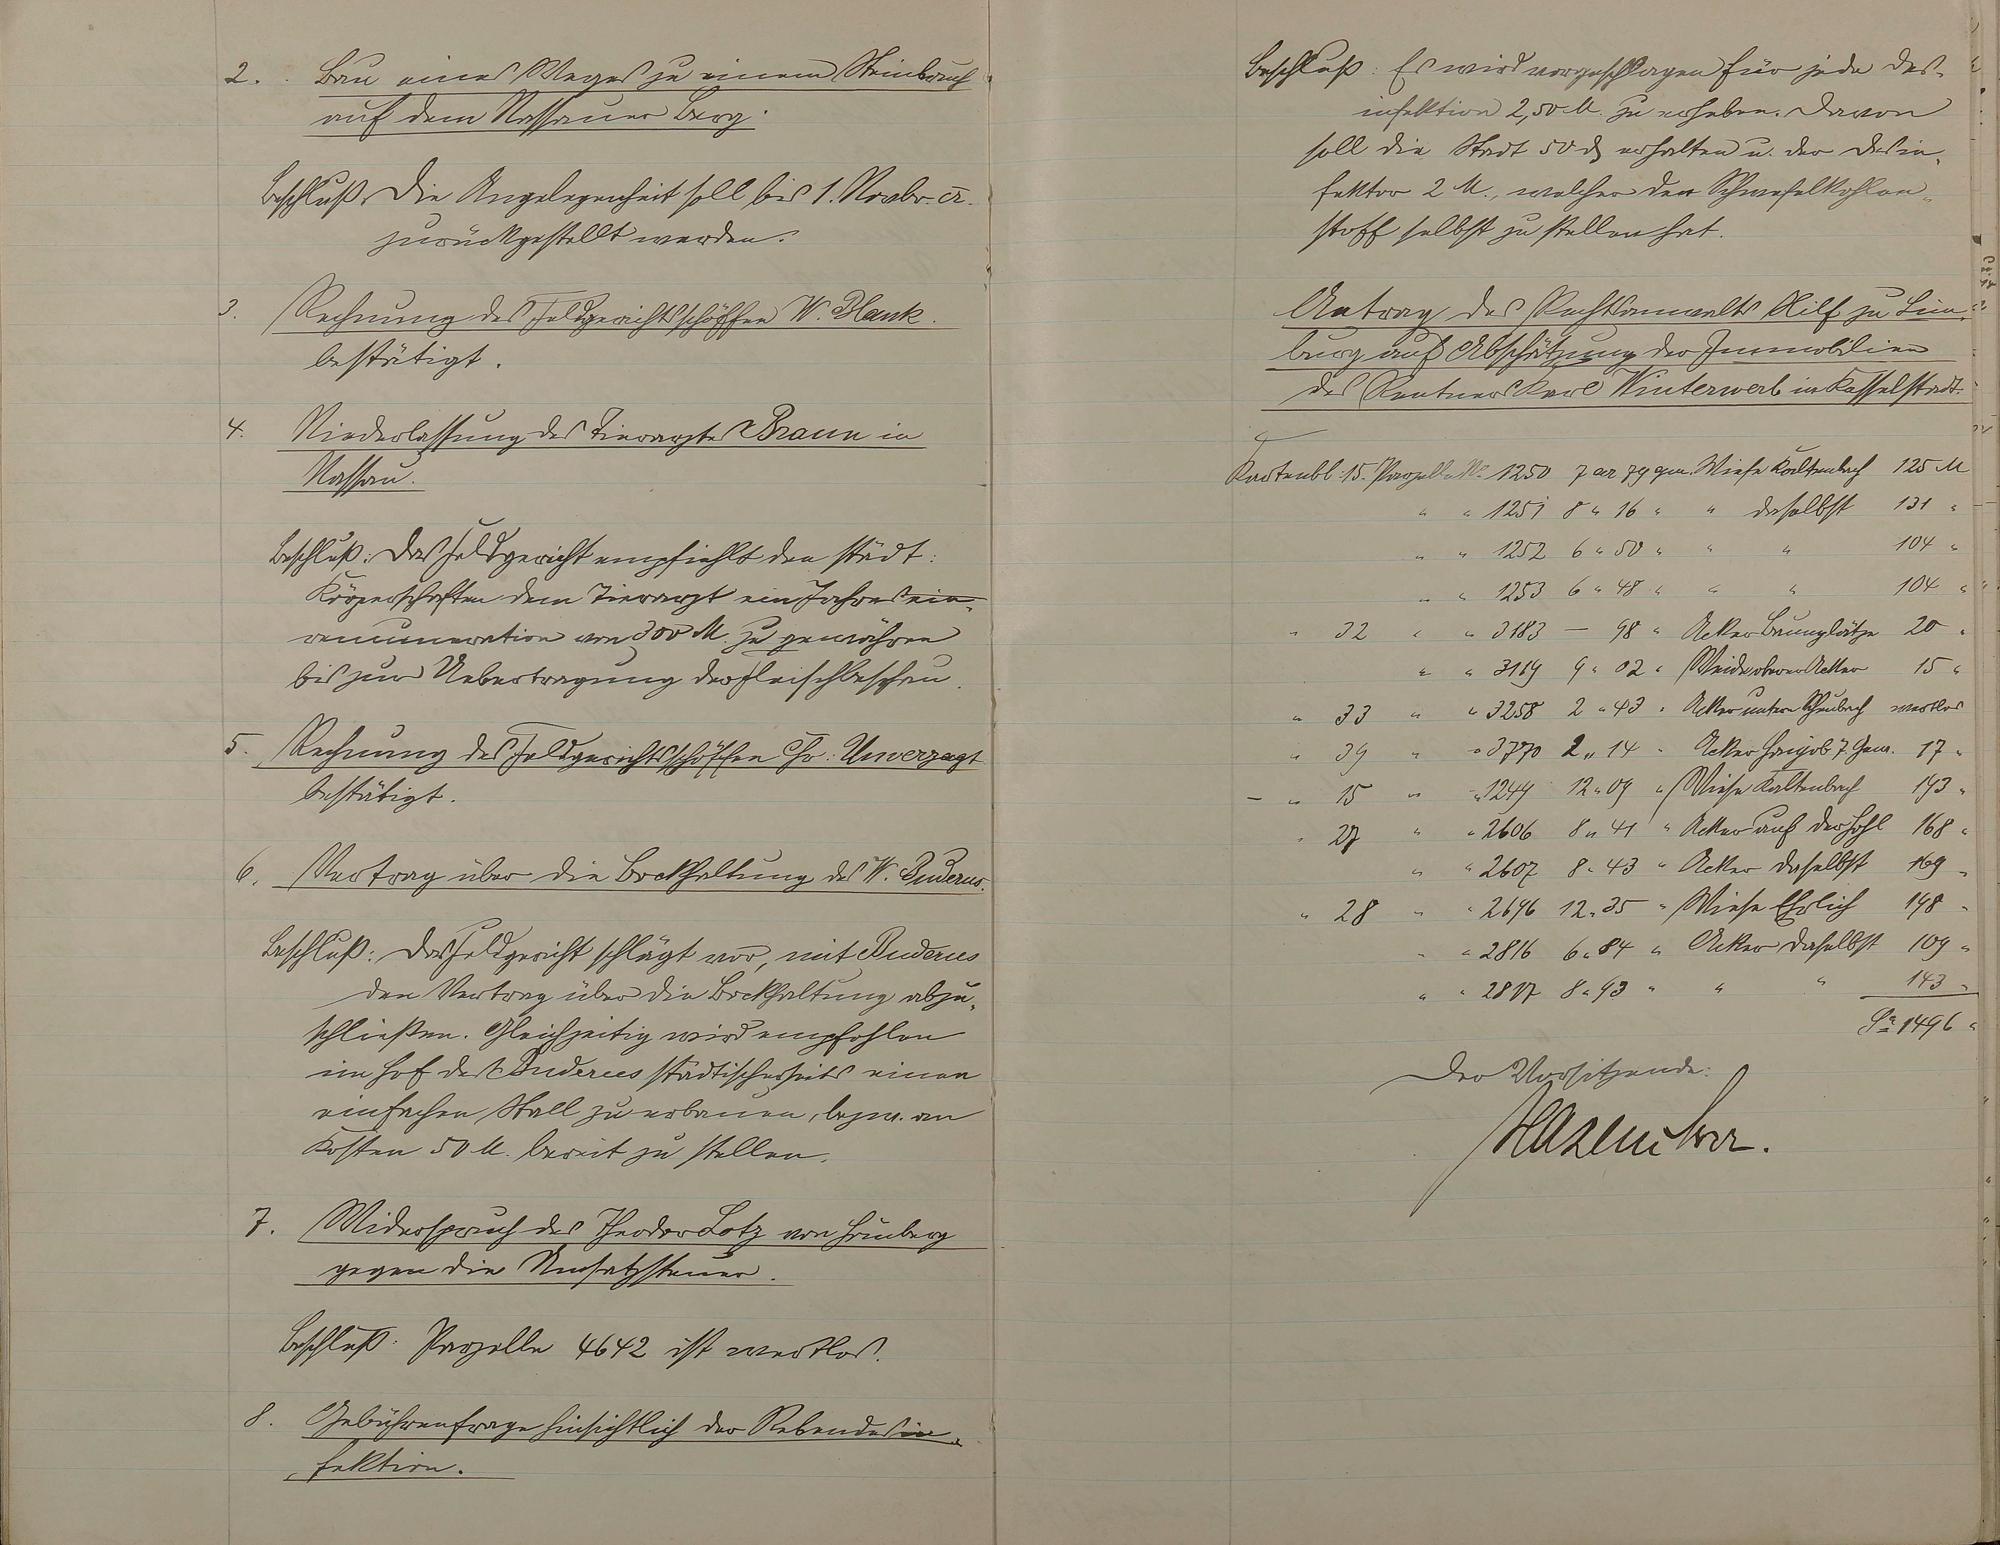 2. Bau eines Weges zu einem Steinbruch
auf dem Nassauer Berg.
Beschluß: Die Angelegenheit soll bis 1. Novbr. cr.
zurückgestellt werden.
3. Rechnung des Feldgerichtsschöffen W. Blank.
bestätigt.
4. Niederlassung des Tierarztes Braun in
Nassau.
Beschluß: Das Feldgericht empfiehlt den städt:
Körperschaften dem Tierarzt ein Jahres
remuneration von 300 M. zu gewähren
bis zur Uebertragung der Fleischbeschau.
5. Rechnung des Feldgerichtsschöffen Chr: Unverzagt
bestätigt.
6. Vertrag über die Bockhaltung des W. Buderus.
Beschluß: Das Feldgericht schlägt vor, mit Buderus
den Vertrag über die Bockhaltung abzu-
schließen. Gleichzeitig wird empfohlen
im Hof des Buderus städtischerseits einen
einfachen Stall zu erbauen, bezw. an
Kosten 50 M. bereit zu stellen.
7. Widerspruch des Theodor Lotz von
gegen die Umsatzsteuer.
Beschluß: Parzelle 4642 ist wertlos.
8. Gebührenfrage hinsichtlich der Rebendesin-
fektion.
Beschluß: Es wird vorgeschlagen für jede Des-
infektion 2,50 M. zu erheben. Davon
soll die Stadt 50 ₰ erhalten u. der Desin-
fektor 2 M., welcher den Schwefelkohlen-
stoff selbst zu stellen hat.
Antrag des Rechtsanwalts Hilf zu Lim-
burg auf Abschätzung der Immobilien
des Rentners Karl Winterwerb in Kasselstadt.
Kartenbl. 15. Parzelle No. 1250 7 ar 79 qm. Wiese Kaltenbach 125 M
" " 1251 8 " 16 " " daselbst 131 "
" " 1252 6 " 50 " " " 104 "
" " 1253 6 " 48 " " " 104 "
" 32 " " 3183 — 98 " Acker Baumplätze 20 "
" " 3119 9 " 02 " Weide oberer Acker 15 "
" 33 " " 3258 2 " 43 " Acker unterm wertlos
" 39 " " 3770 2 " 14 " Acker 7. Gew. 17 "
" 15 " " 1249 12 " 09 " Wiese Kaltenbach 193 "
" 27 " " 2606 8 " 41 " Acker auf der Hohl 168 "
" " 2607 8 " 43 " Acker daselbst 169 "
" 28 " " 2696 12 " 35 " Wiese Ehrlich 198 "
" " 2816 6 " 84 " Acker daselbst 109 "
" " 2817 8 " 93 " " " 143 "
Sa 1496 "
Der Vorsitzende: